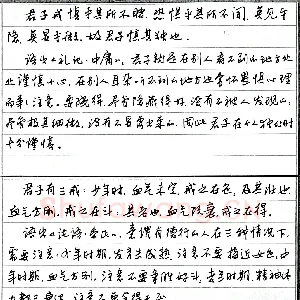 君子戒慎乎其所不睹,恐惧乎其所不闻,莫见乎
隐,莫显乎微,故君子慎其独也。
语出《礼记·中庸》。君子就是在别人看不到的地方也
谨慎小心,在别人耳朵听不到的地方也会怀畏惧心理
而事事注意。要晓得,尽管隐蔽得好,没有不被人发现的,
尽管极其细微,没有不暴露出来的,因此君子在个人独处时
十分谨慎。
君子有三戒:少年时,血气未定,戒之在色,及其壮也,
血气方刚,戒之在斗,及其老也,血气既衰,戒之在得。
语出《论语·季氏》。意谓有德行的人在三种情况下,
需要注意:少年时期,发育未成熟,注意不要接近女色,中
年时期,血气方刚,注意不要争胜好斗,老年时期,精神体